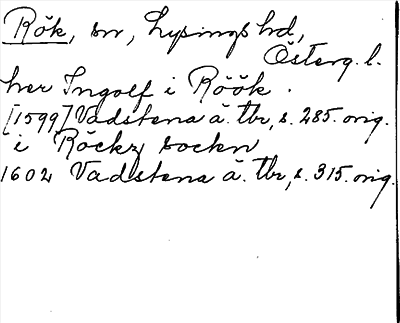 Rök, sn, Lysings hd,
Österg. l.
herr Ingolf i Röök.
[1599] Vadstena ä. tbr, s. 285. orig.
i Röckz sockn
1602 Vadstena ä. tbr, s. 315. orig.